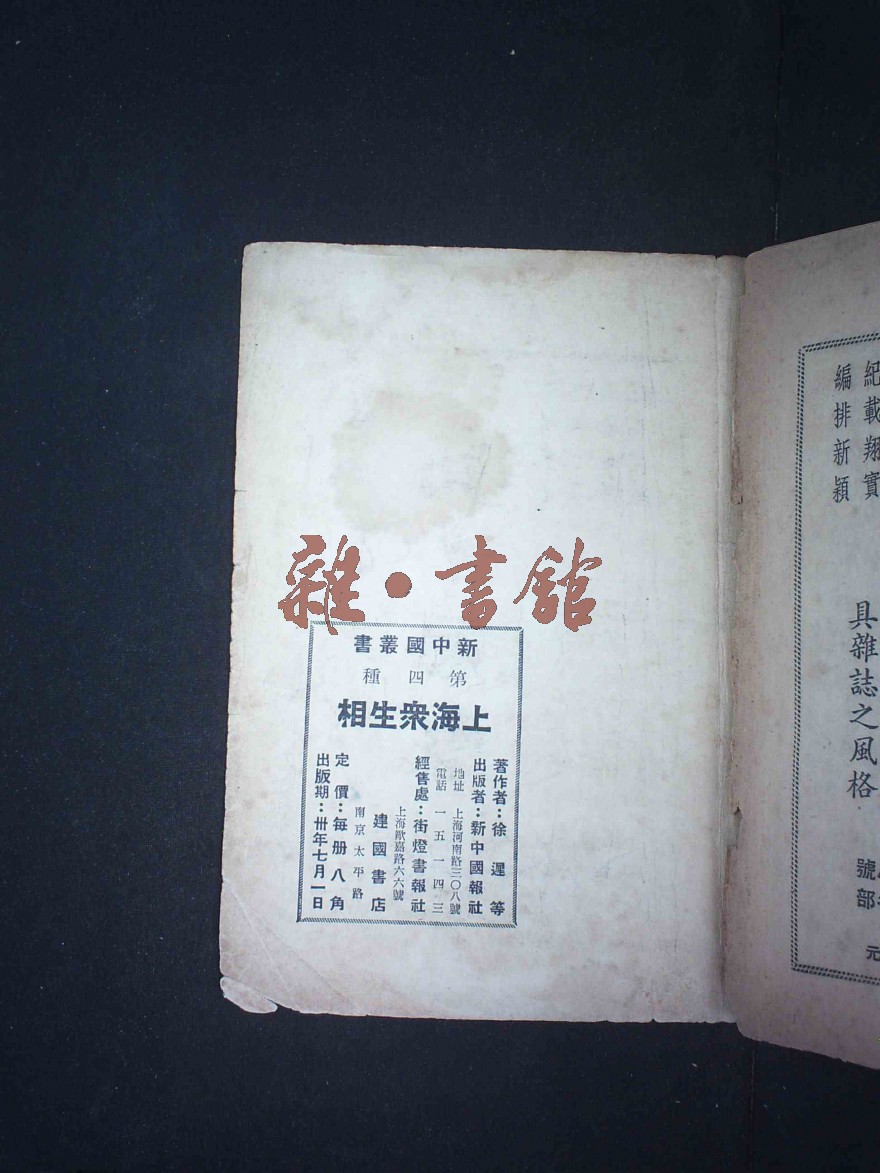 雜·書館
新中國叢書
第四種
上海衆生相
著作者：徐遲等
出版者：新中國報社
地址 上海河南路三〇八號
電話 一五一四三
經售處：街燈書報社
上海歐嘉路六六號
建國書店
南京太平路
定價：每册八角
出版期：卅年七月一日
紀載翔實
編排新穎
具雜誌之風格
號
部
元